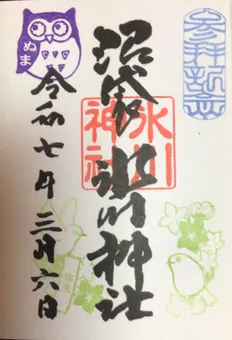 参拝記念
沼袋氷川神社
氷川
神社
令和七年三月六日
ぬま